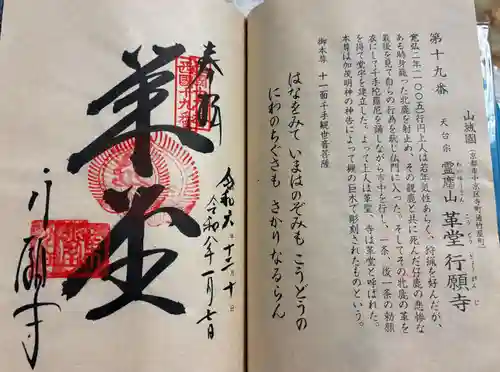 第十九番
山城國（京都市中京区寺町通竹屋町）
天台宗 霊麀山 革堂 行願寺
寛弘二年一〇〇五行円上人は若年気性あらく、狩猟を好んだが、
ある時身籠った牝鹿を射止め、その親鹿と共に死んだ仔鹿の悲惨な
最後を見て自らの行為を恥じ仏門に入った。そしてその牝鹿の革を
衣にして千手陀羅尼を誦しながら寺中を行し、一条、後一条の勅願
を得て堂宇を建立した。よって上人は革聖、寺は革堂と呼ばれた。
本尊は加茂明神の神告によって槻の巨木で彫刻されたものという。
御本尊 十一面千手観世音菩薩
はなをみて いまはのぞみも こうどうの
にわのちぐさも さかりなるらん
奉拝
西國十九番
革堂
行願寺
令和六年十二月十日
令和八年一月七日